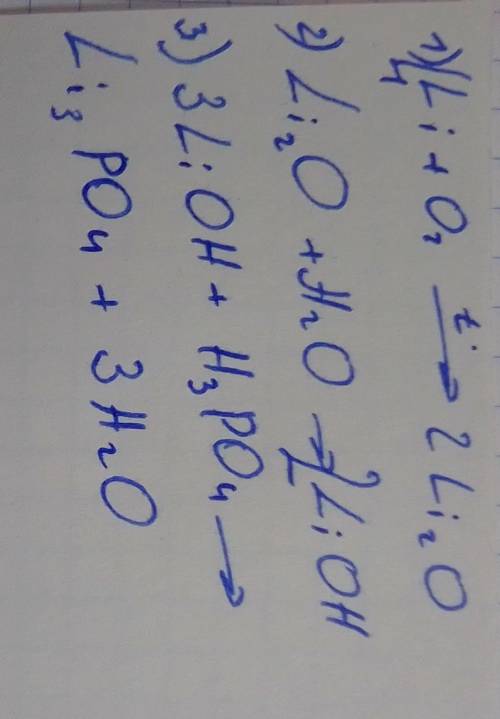 1) 4Li + O₂ →t° 2Li₂O
2) Li₂O + H₂O → 2LiOH
3) 3LiOH + H₃PO₄ →
Li₃PO₄ + 3H₂O